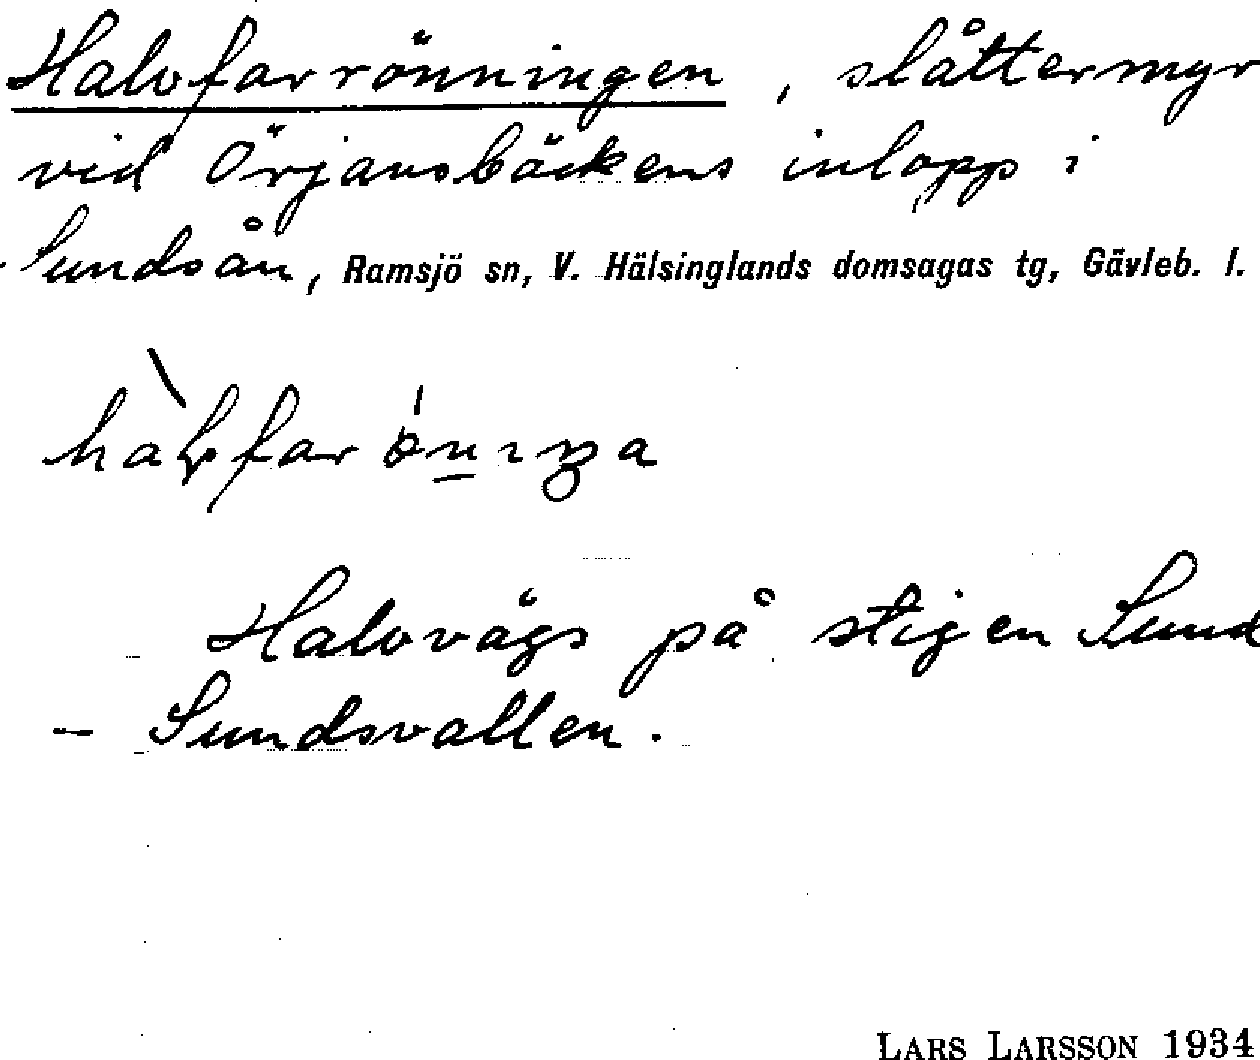 Halvfarrönningen, slåttermyr
vid Örjansbäckens inlopp i
Sundsån, Ramsjö sn, V. Hälsinglands domsagas tg, Gävleb. l.
Halvvägs på stigen Sund
- Sundsvallen.
LARS LARSSON 1934